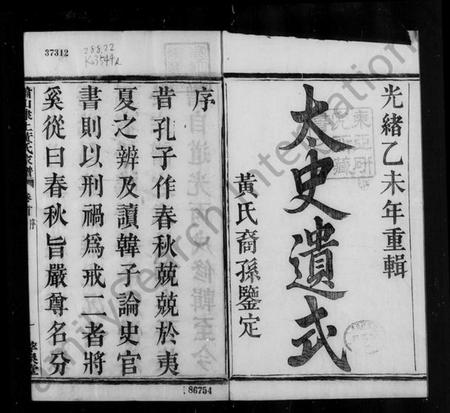 光緒乙未年重輯
太史遺式
黃氏裔孫鑒定
37312
288.22
序
昔孔子作春秋兢兢於夷
夏之辨及讀韓子論史官
書則以刑禍爲戒二者將
奚從曰春秋旨嚴尊名分
86754